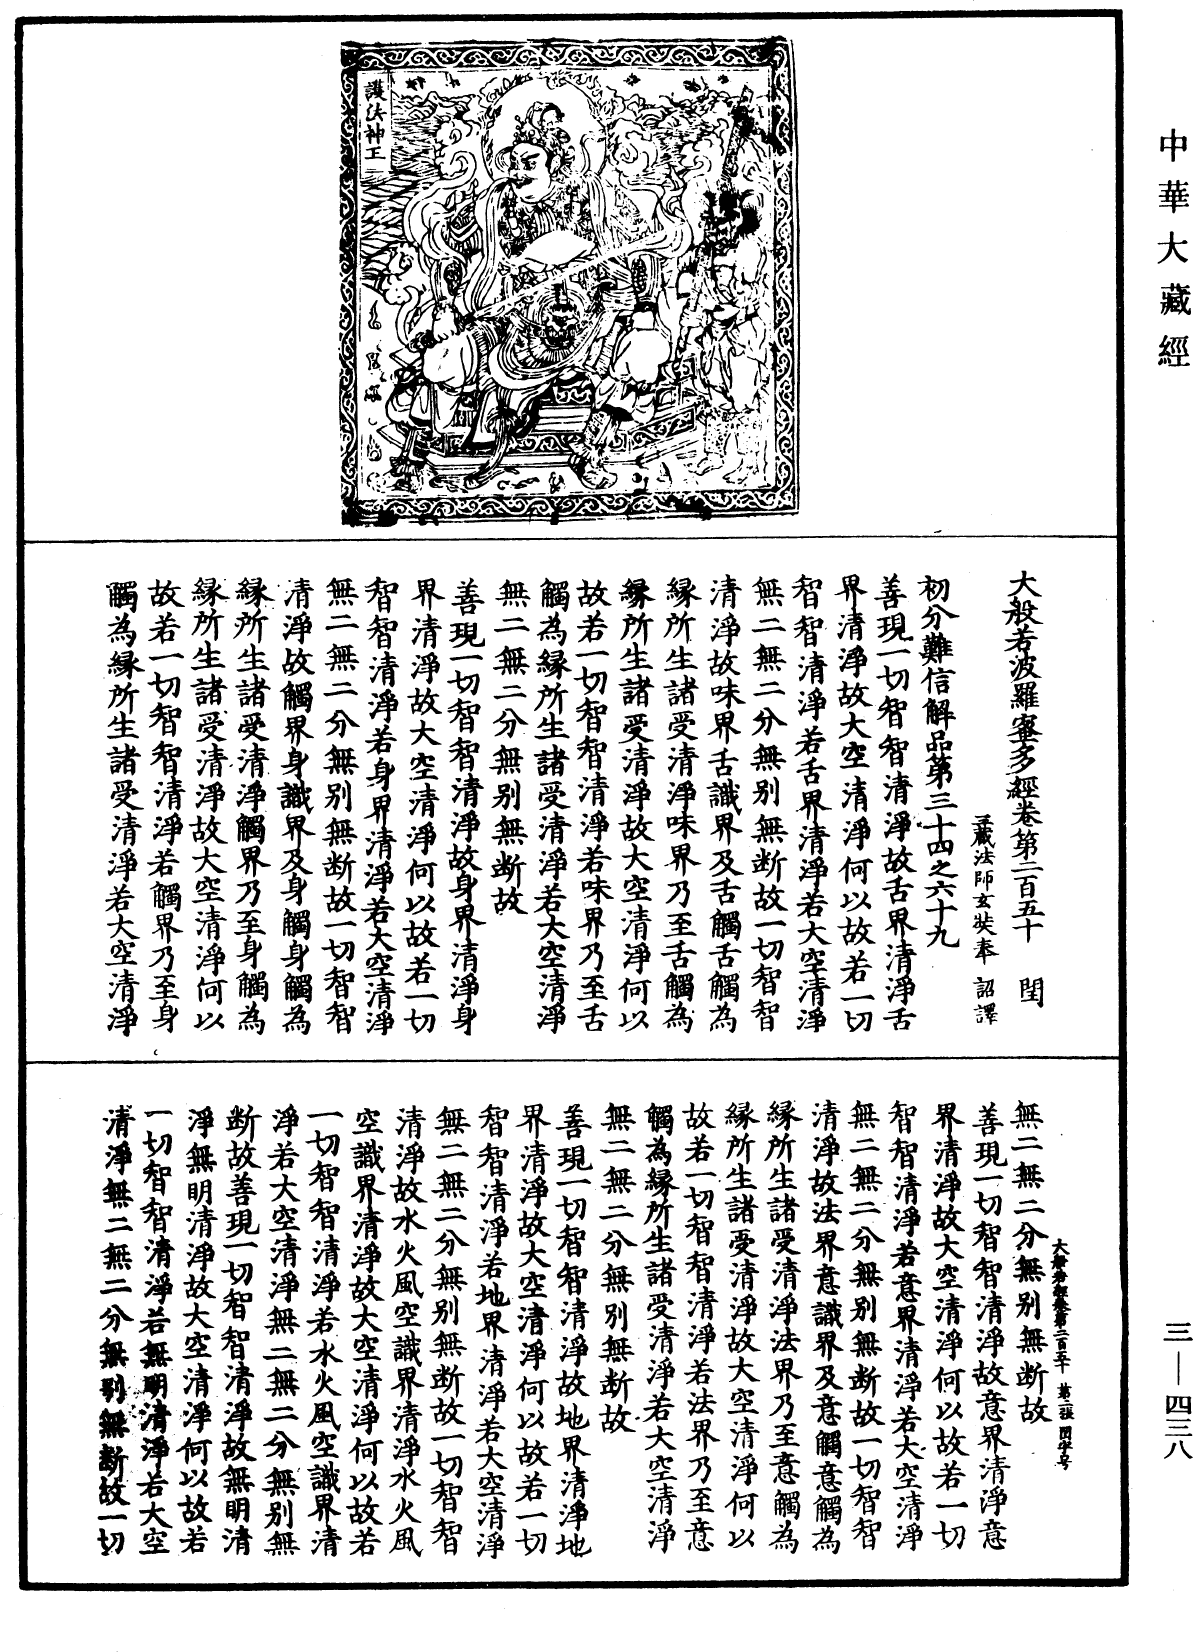 中華大藏經
護法神王
大般若波羅蜜多經卷第二百五十　閏
三藏法師玄奘奉　詔譯
初分難信解品第三十四之六十九
善現一切智智清淨故舌界清淨舌
界清淨故大空清淨何以故若一切
智智清淨若舌界清淨若大空清淨
無二無二分無別無斷故一切智智
清淨故味界舌識界及舌觸舌觸為
緣所生諸受清淨味界乃至舌觸為
緣所生諸受清淨故大空清淨何以
故若一切智智清淨若味界乃至舌
觸為緣所生諸受清淨若大空清淨
無二無二分無別無斷故
善現一切智智清淨故身界清淨身
界清淨故大空清淨何以故若一切
智智清淨若身界清淨若大空清淨
無二無二分無別無斷故一切智智
清淨故觸界身識界及身觸身觸為
緣所生諸受清淨觸界乃至身觸為
緣所生諸受清淨故大空清淨何以
故若一切智智清淨若觸界乃至身
觸為緣所生諸受清淨若大空清淨
無二無二分無別無斷故
大般若經卷第二百五十　第二張　閏字号
善現一切智智清淨故意界清淨意
界清淨故大空清淨何以故若一切
智智清淨若意界清淨若大空清淨
無二無二分無別無斷故一切智智
清淨故法界意識界及意觸意觸為
緣所生諸受清淨法界乃至意觸為
緣所生諸受清淨故大空清淨何以
故若一切智智清淨若法界乃至意
觸為緣所生諸受清淨若大空清淨
無二無二分無別無斷故
善現一切智智清淨故地界清淨地
界清淨故大空清淨何以故若一切
智智清淨若地界清淨若大空清淨
無二無二分無別無斷故一切智智
清淨故水火風空識界清淨水火風
空識界清淨故大空清淨何以故若
一切智智清淨若水火風空識界清
淨若大空清淨無二無二分無別無
斷故善現一切智智清淨故無明清
淨無明清淨故大空清淨何以故若
一切智智清淨若無明清淨若大空
清淨無二無二分無別無斷故一切
三—四三八